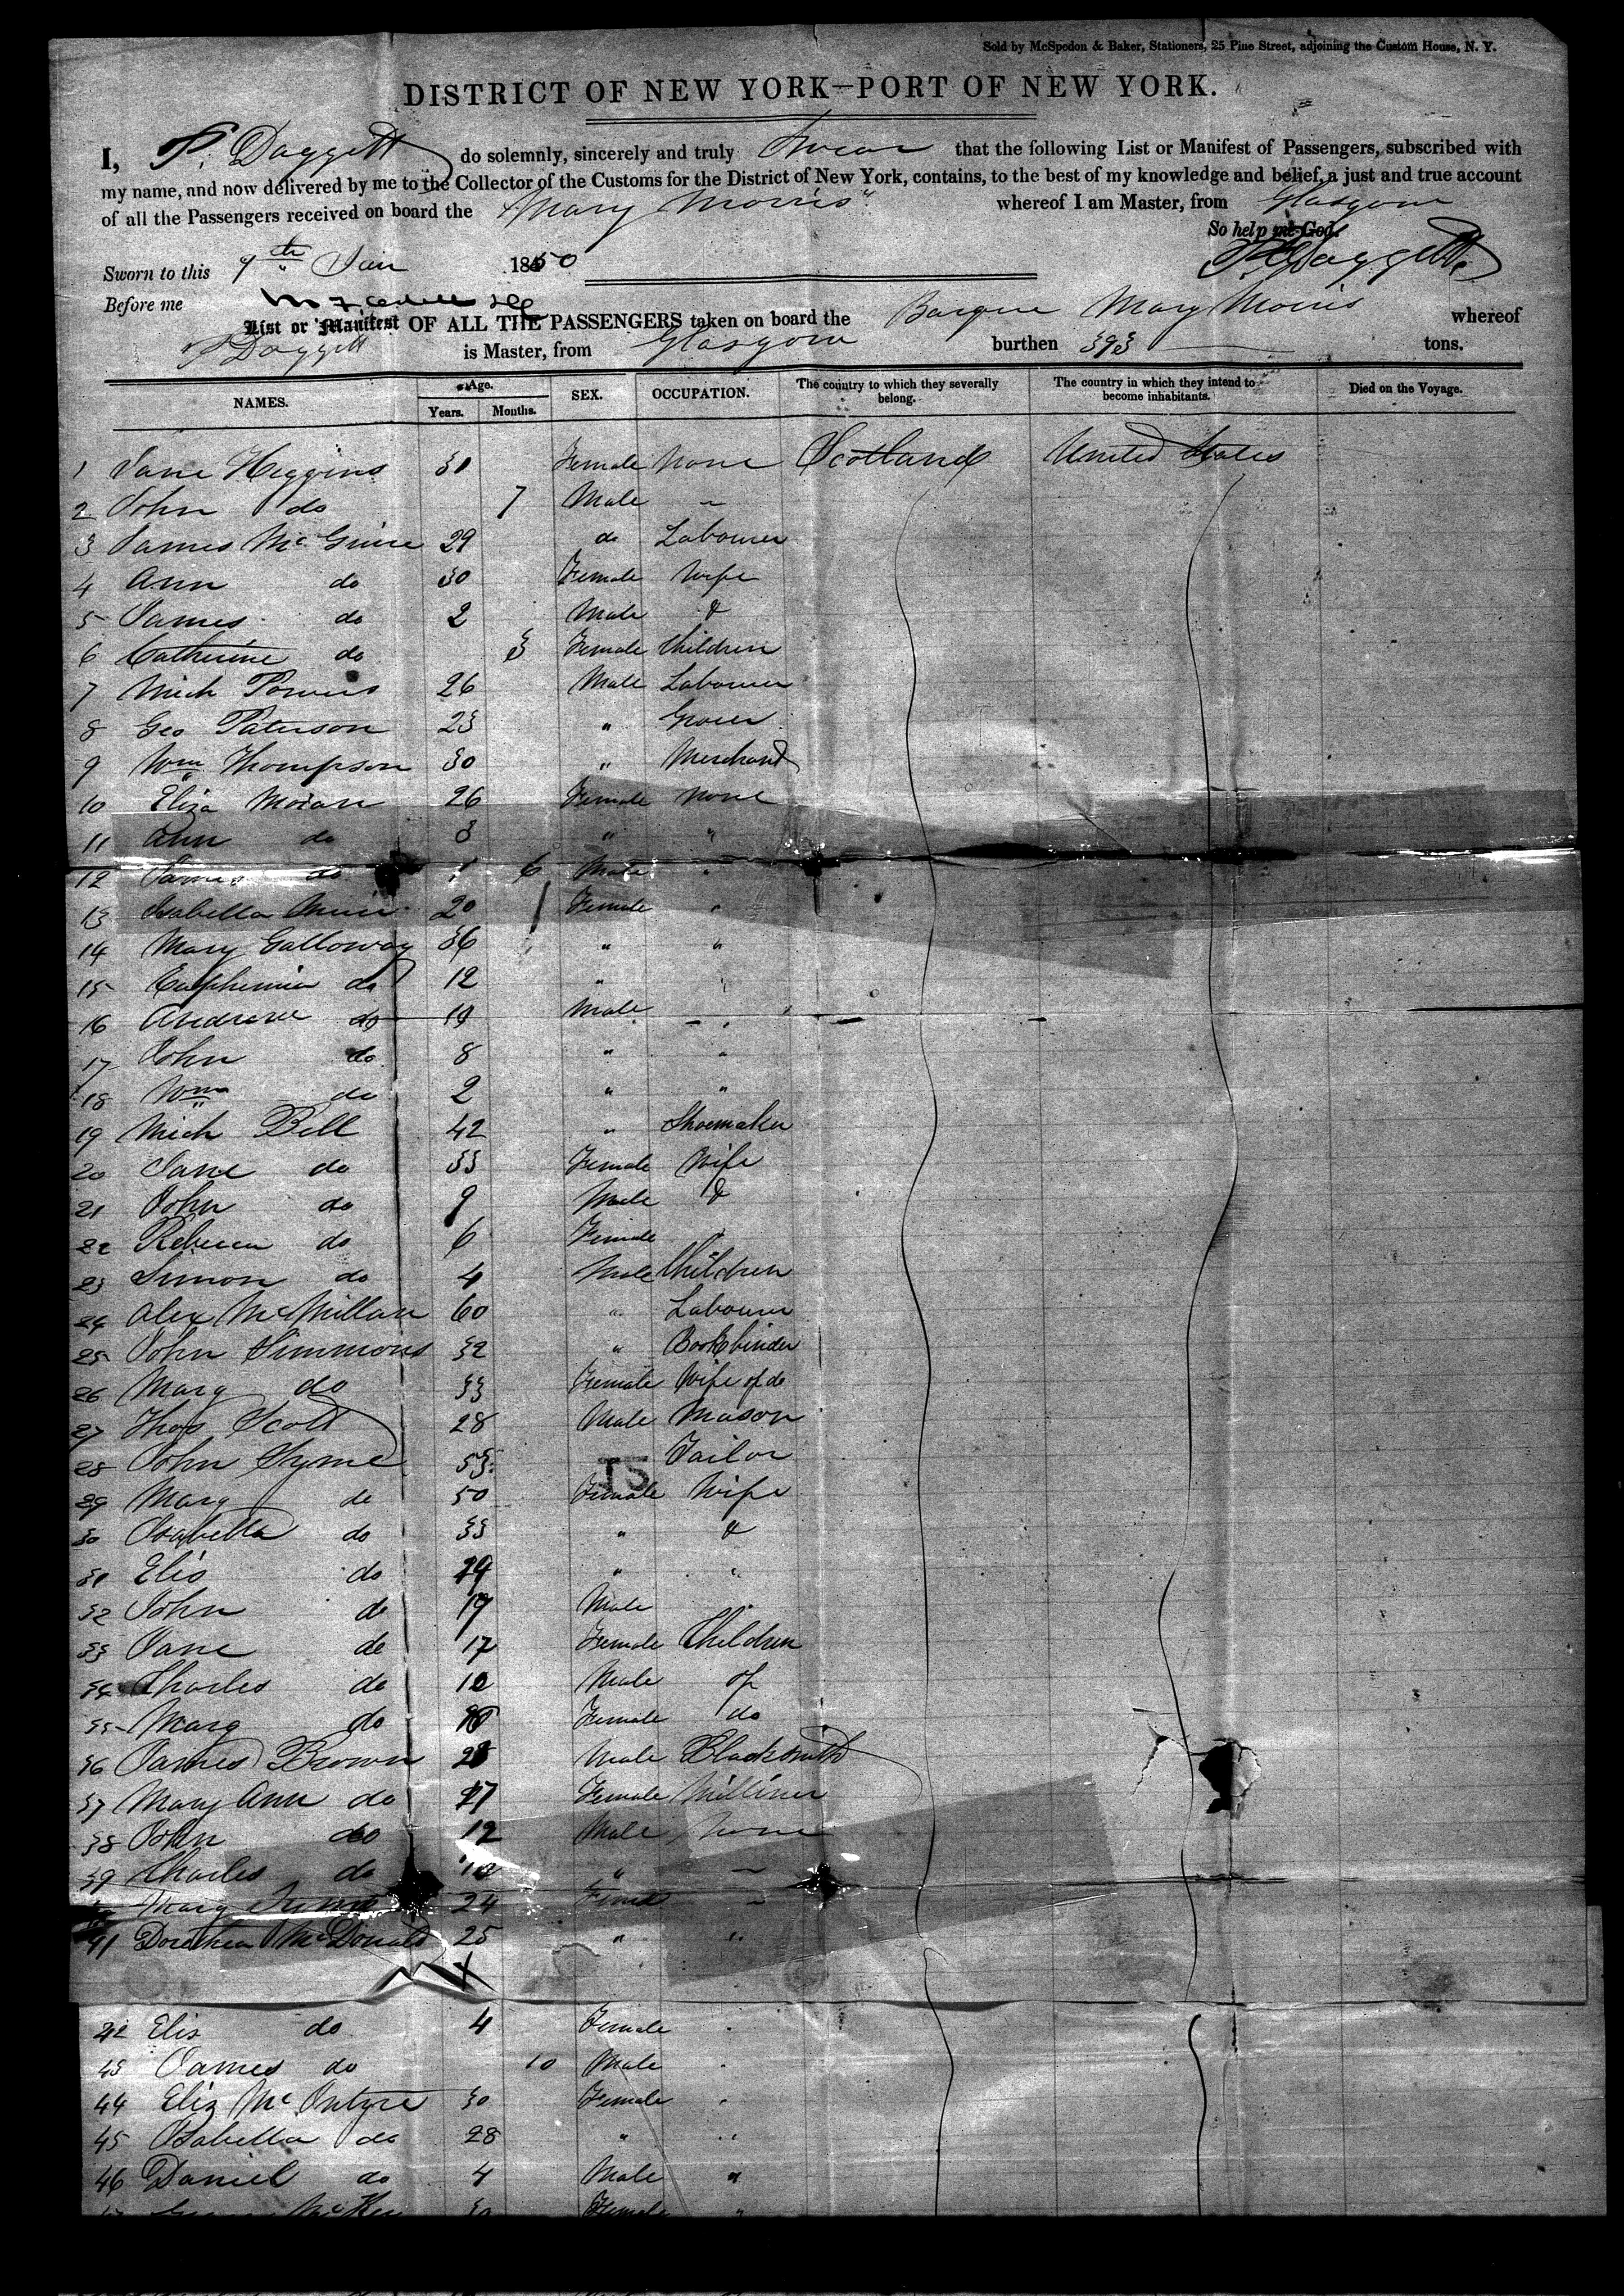 Sold by McSpedon & Baker, Stationers, 25 Pine Street, adjoining the Custom House, N. Y.
DISTRICT OF NEW YORK—PORT OF NEW YORK.
I, P. Daggett do solemnly, sincerely and truly Swear that the following List or Manifest of Passengers, subscribed with
my name, and now delivered by me to the Collector of the Customs for the District of New York, contains, to the best of my knowledge and belief, a just and true account
of all the Passengers received on board the "Mary Morris" whereof I am Master, from Glasgow
So help me God.
Sworn to this 7th Jan 1850 P. Daggett
Before me
List or Manifest OF ALL THE PASSENGERS taken on board the Barque Mary Morris whereof
P Daggett is Master, from Glasgow burthen 393 tons.
NAMES. Age. Years. Months. SEX. OCCUPATION. The country to which they severally belong. The country in which they intend to become inhabitants. Died on the Voyage.
1 Jane Higgins 31 Female None Scotland United States
2 John do 7 Male ~
3 James McGuire 29 do Labourer
4 Ann do 30 Female Wife
5 James do 2 Male &
6 Catherine do 3 Female Children
7 Mich Powers 26 Male Labourer
8 Geo Paterson 23 " Grocer
9 Wm Thompson 30 " Merchand
10 Eliza Moran 26 Female None
11 Ann do 3 " "
12 James do 1 6 Male "
13 Isabella Muir 20 Female "
14 Mary Galloway 36 " "
15 Euphemia do 12 " "
16 Andrew do 10 Male "
17 John do 8 " "
18 Wm do 2 " "
19 Mich Bell 42 " Shoemaker
20 Jane do 33 Female Wife
21 John do 9 Male &
22 Rebecca do 6 Female
23 Simon do 4 Male Children
24 Alex McMillan 60 " Labourer
25 John Simmons 32 " Bookbinder
26 Mary do 33 Female Wife of do
27 Thos Scott 28 Male Mason
28 John Syme 53 Tailor
29 Mary do 50 Female Wife
30 Isabella do 33 " &
31 Elis do " "
32 John do 19 Male "
33 Jane do 17 Female Children
34 Charles do 10 Male of
35 Mary do Female do
36 James Brown Male Blacksmith
37 Mary Ann do Female Milliner
38 John do 12 Male None
39 Charles do " ~
Mary 24 Female ~
41 Dorothea McDonald 25 " "
X
42 Elis do 4 Female "
43 James do 10 Male "
44 Eliz McIntyre 30 Female "
45 Isabella do 28 " "
46 Daniel do 4 Male "
McKee 30 Female "